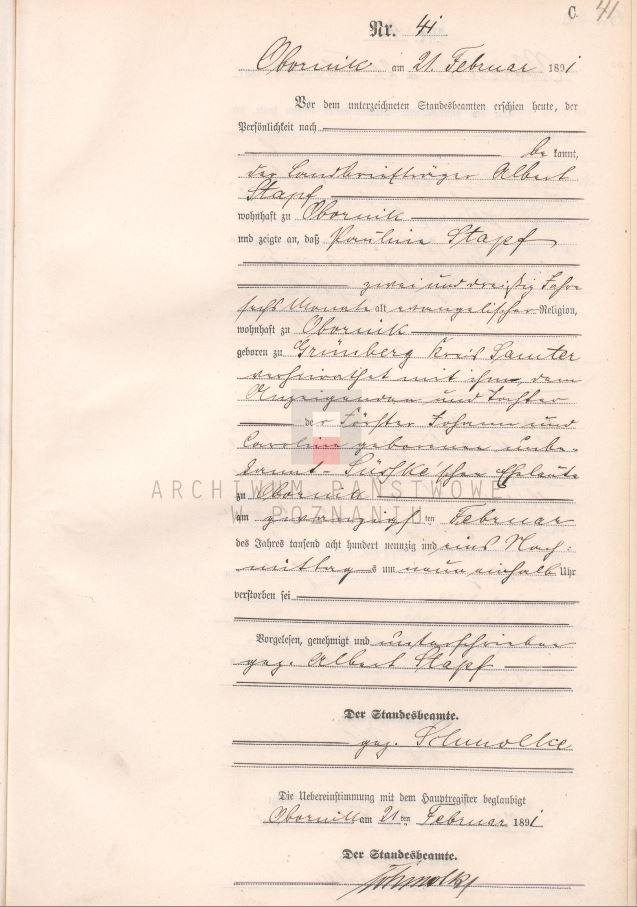 C. 41
Nr. 41
Obornik am 21. Februar 1891
Vor dem unterzeichneten Standesbeamten erschien heute, der
Persönlichkeit nach
be kannt,
der Landbriefträger Albert
Stapf
wohnhaft zu Obornik
und zeigte an, daß Pauline Stapf
zwei und dreißig Jahre
sechs Monate alt evangelischer Religion,
wohnhaft zu Obornik
geboren zu Grünberg Kreis Samter
verheirathet mit ihm, dem
Anzeigenden und Tochter
der Förster Johann und
Caroline geborenen unbe-
kannt - Süßke'schen Eheleute
zu Obornik
am zwanzigsten Februar
des Jahres tausend acht hundert neunzig und eins Nach-
mittags um neun einhalb Uhr
verstorben sei
Vorgelesen, genehmigt und unterschrieben
gez. Albert Stapf
Der Standesbeamte.
gez. Schmolke
Die Uebereinstimmung mit dem Hauptregister beglaubigt
Obornik am 21 ten Februar 1891
Der Standesbeamte.
Schmolke
ARCHIWUM PAŃSTWOWE
W POZNANIU